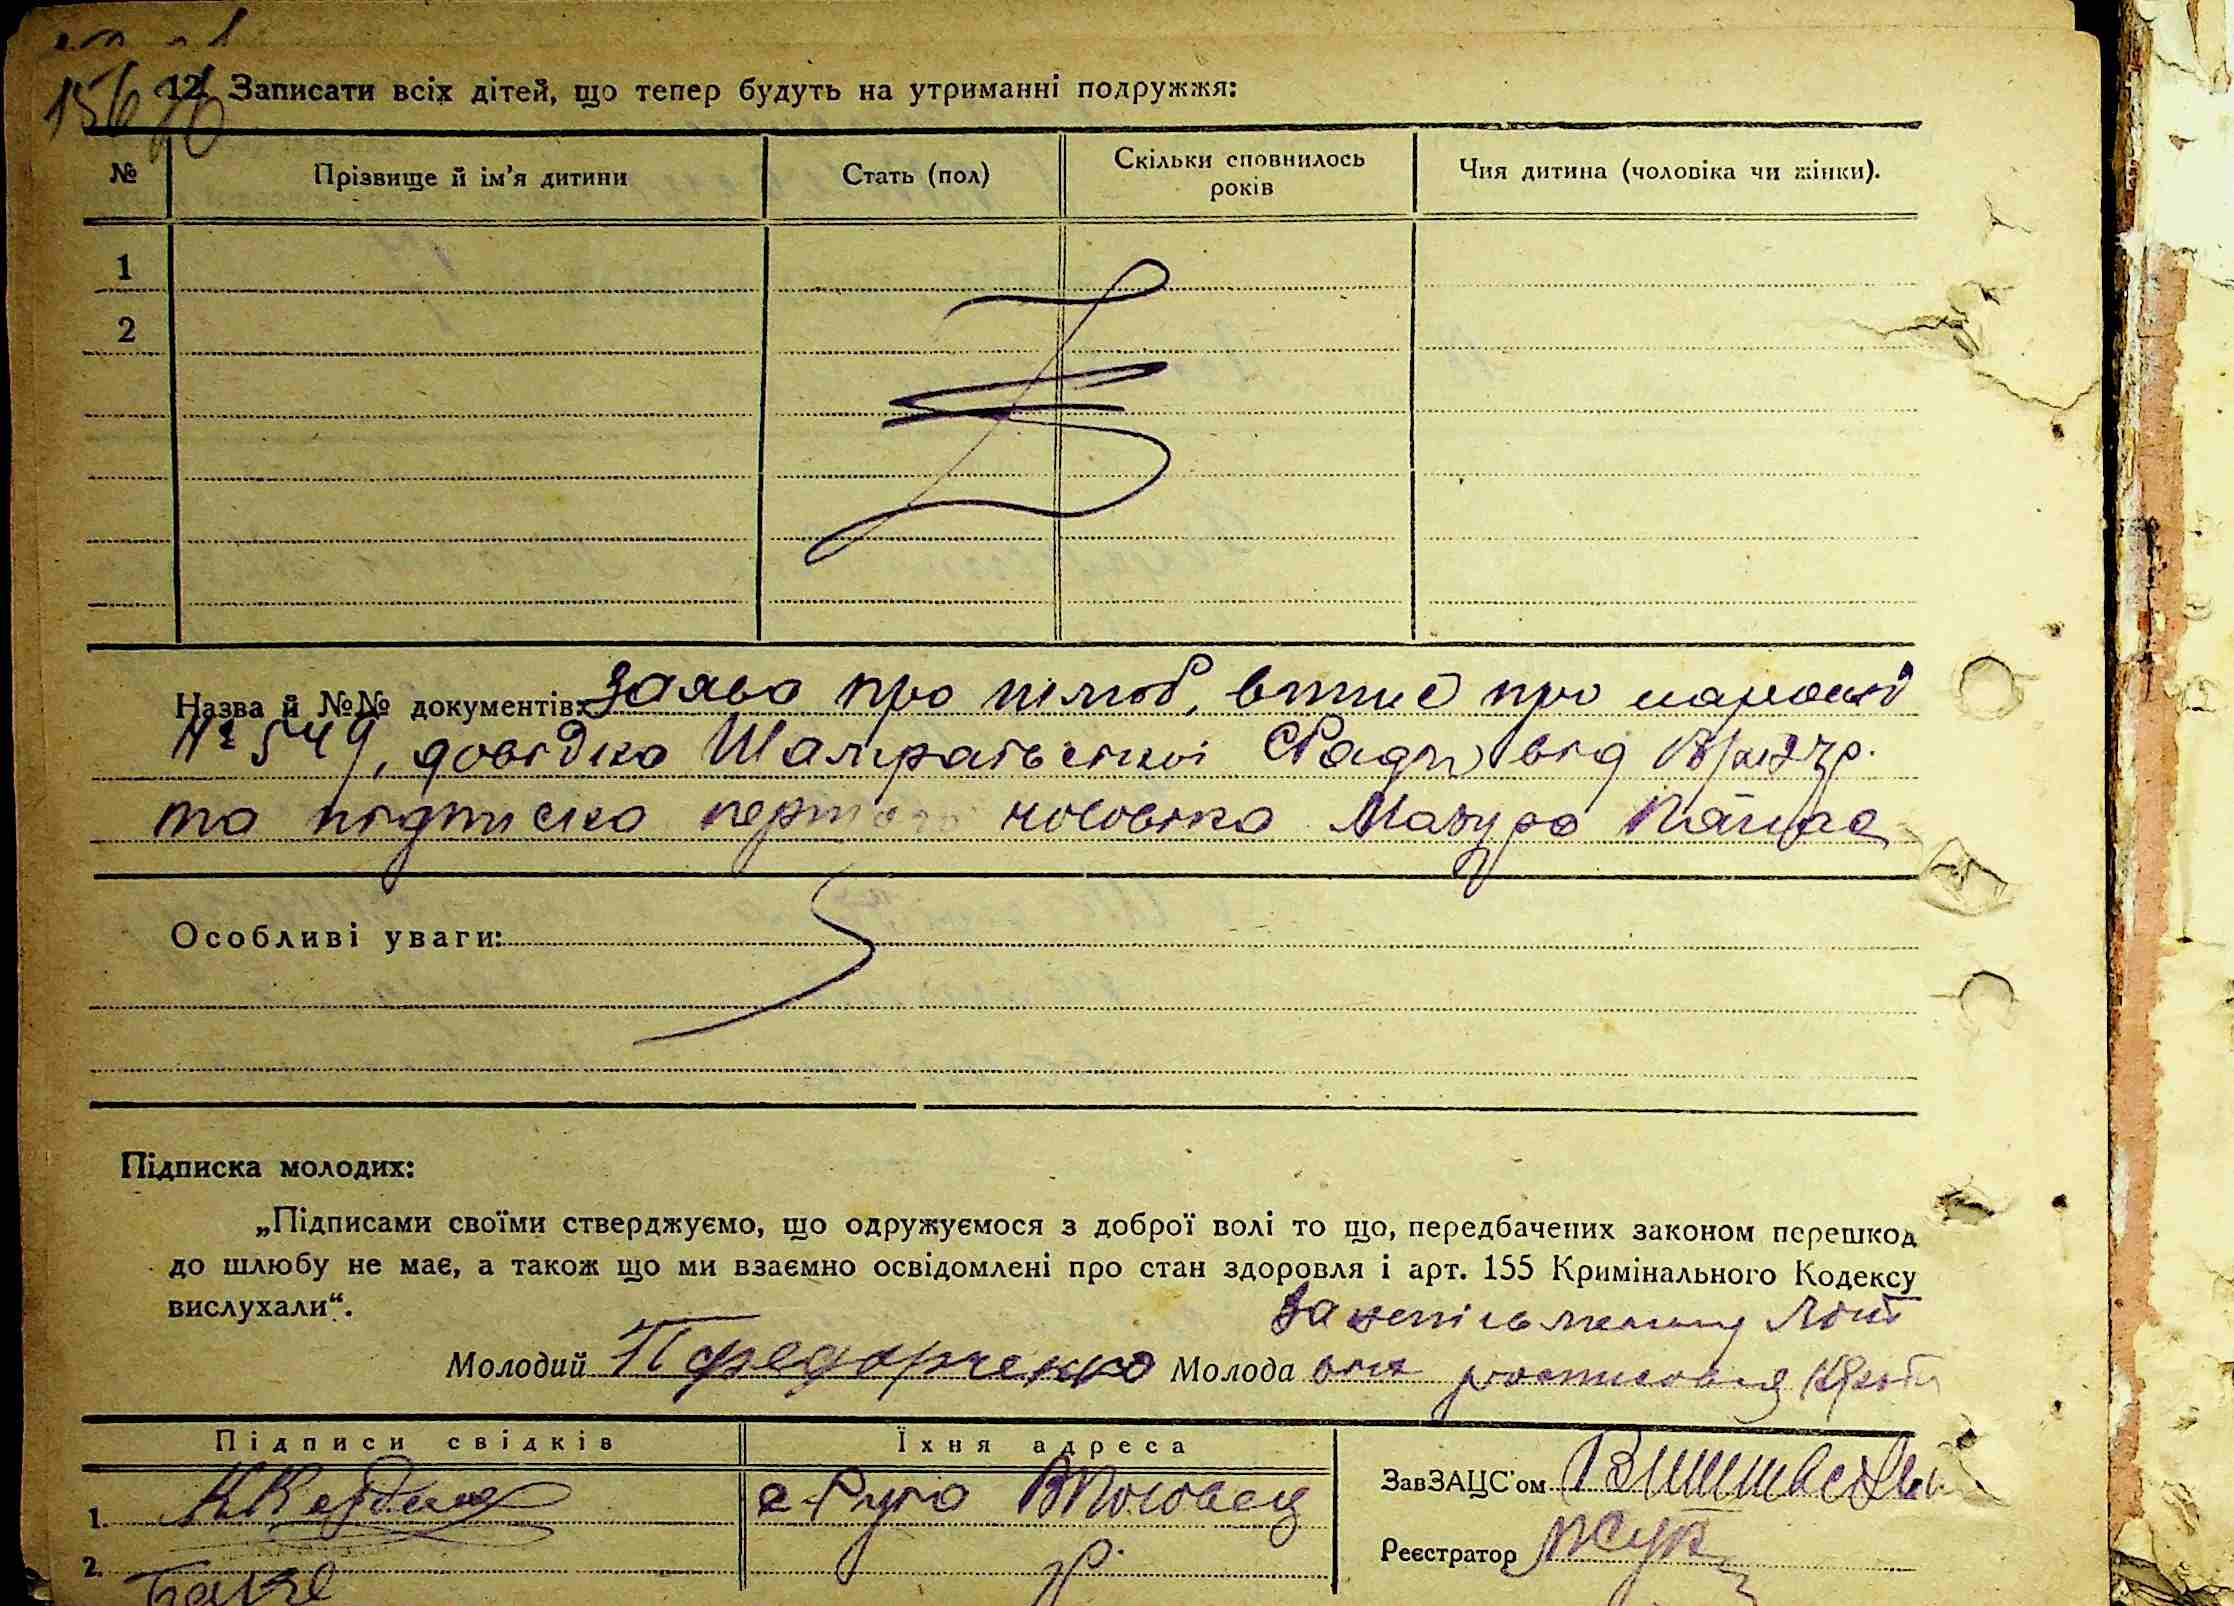 156
12. Записати всіх дітей, що тепер будуть на утриманні подружжя:
№ Прізвище й ім'я дитини Стать (пол) Скільки сповнилось років Чия дитина (чоловіка чи жінки).
1
2
Назва й №№ документів: Заява про шлюб, витис про народж
№ 549, довідка Шамраївської С/Ради від
та підписка першого чоловіка Мазура Панаса
Особливі уваги:
Підписка молодих:
„Підписами своїми стверджуємо, що одружуємося з доброї волі то що, передбачених законом перешкод
до шлюбу не має, а також що ми взаємно освідомлені про стан здоровля і арт. 155 Кримінального Кодексу
вислухали“.
За неписьменну
Молодий П Федорченко Молода росписався
Підписи свідків Їхня адреса
ЗавЗАЦС'ом
1. с. Рудо В Половец
Реєстратор Жук
2.